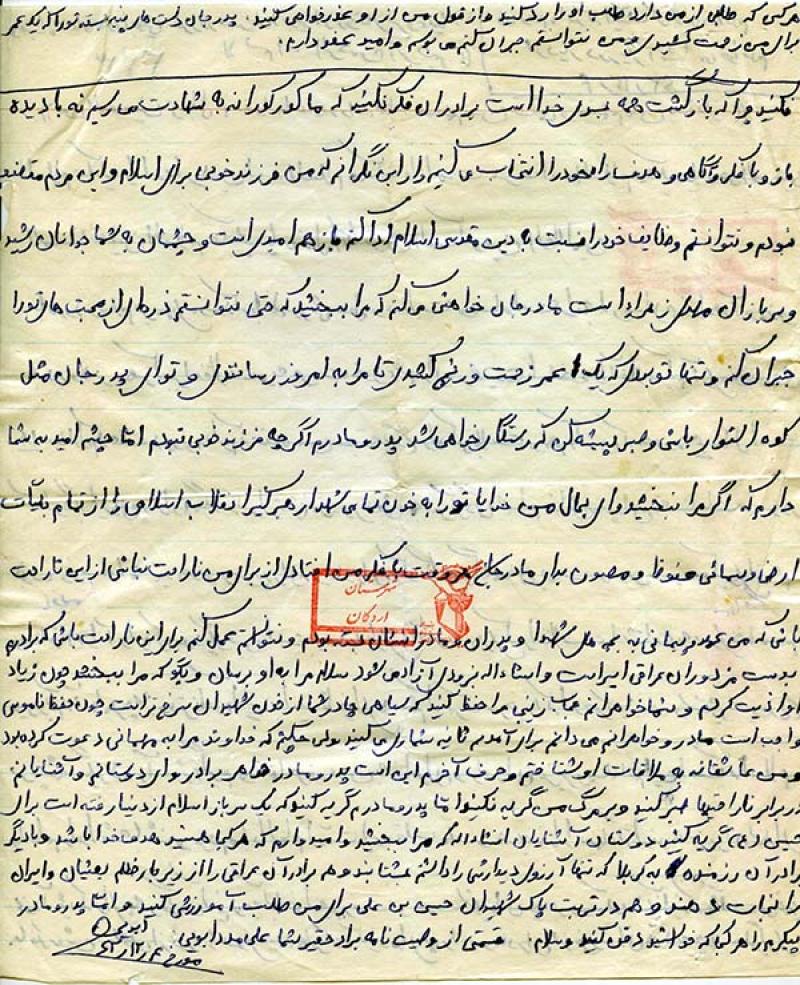 هرکس که طلبی از من دارد طلب او را رد کنید و از قول من از او عذرخواهی کنید. پدر جان دست های پینه بسته تو را که یک عمر
برای من زحمت کشیدی و من نتوانستم جبران کنم می بوسم و امید عفو دارم.
فکنید چرا که بازگشت همه بسوی خدا است برادران فکر نکنید که ما کورکورانه به شهادت می رسیم نه با دیده
باز و با فکر و آگاهی و هدف راه خود را انتخاب می کنیم و از این نگرانم که من فرزند خوبی برای اسلام و این مردم
نبودم و نتوانستم وظایف خود را نسبت به دین مقدس اسلام ادا کنم باز هم امیدی است و چشمان به شما جوانان رشید
و سربازان مهدی زهرا است مادر جان خواهش می کنم که مرا ببخشید که حتی نتوانستم ذره ای از محبت های تو را
جبران کنم و تنها تو بودی که یک عمر زحمت و رنج کشیدی تا مرا به امروز رساندی و تو ای پدر جان مثل
کوه استوار باش و صبر پیشه کن که رستگار خواهی شد پدر و مادرم اگر چه فرزند خوبی نبودم اما چشم امید به شما
دارم که اگر مرا نبخشید وای بحال من خدایا تو را به خون تمامی شهدا رهبر کبیر انقلاب اسلامی را از تمام بلیات
ارضی و سمائی محفوظ و مصون بدار مادر جان هر وقت به فکر من افتادی از برای من ناراحت نباش از این ناراحت
شهرستان
اردکان
باش که من عهد و پیمانی به همه شهدا و پدران و مادرانشان بسته بودم و نتوانستم عمل کنم برای این ناراحت باش که برادرم
بدست مزدوران عراقی اسیر است و انشاءاله بزودی آزاد می شود سلام مرا به او برسان و بگو که مرا ببخشد چون زیاد
او را اذیت کردم و شما خواهرانم حجاب زینبی را حفظ کنید که سیاهی چادر شما از خون شهیدان سرخ تر است چون حفظ ناموس
واجب است مادر و خواهرانم می دانم برای آمدنم ثانیه شماری می کنید ولی چکنم که خداوند مرا به مهمانی دعوت کرده بود
و من عاشقانه به ملاقات او شتافتم و حرف آخرم این است پدر و مادر خواهر برادر و ای دوستانم و آشنایانم
در برابر نارحتیها صبر کنید و بر مرگ من گریه نکنید اما پدر و مادرم گریه کنید که یک سرباز اسلام از دنیا رفته است برای
حسین (ع) گریه کنید دوستان آشنایان انشاءاله که مرا ببخشید و امیدوارم که هر کجا هستید هدف خدا باشد و با دیگر
برادران رزمنده به کربلا که تنها آرزوی دیدارش را داشتم بشتابند و هم برادران عراقی را از زیر بار ظلم بعثیان و ایران
را نجات دهند و هم در تربت پاک شهیدان حسین بن علی برای من طلب آمرزش کنید و اما پدر و مادر
پیکرم را هر کجا که خواستید دفن کنید والسلام. قسمتی از وصیت نامه برادر حقیر شما علی مددابویی
مورخ